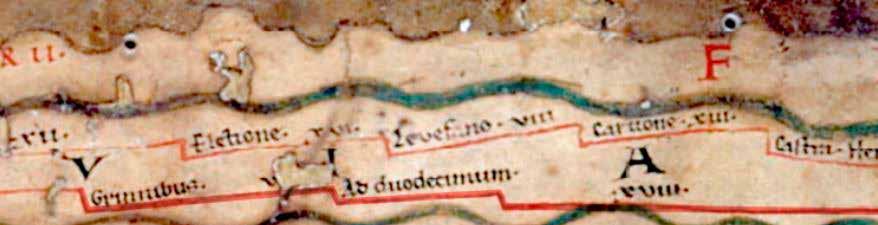 F
XII. Fletione. XVI. Levefano. VIII Caruone. XIII. Castra. Her
V A
Grinnibus. Ad duodecimum. XVIII.